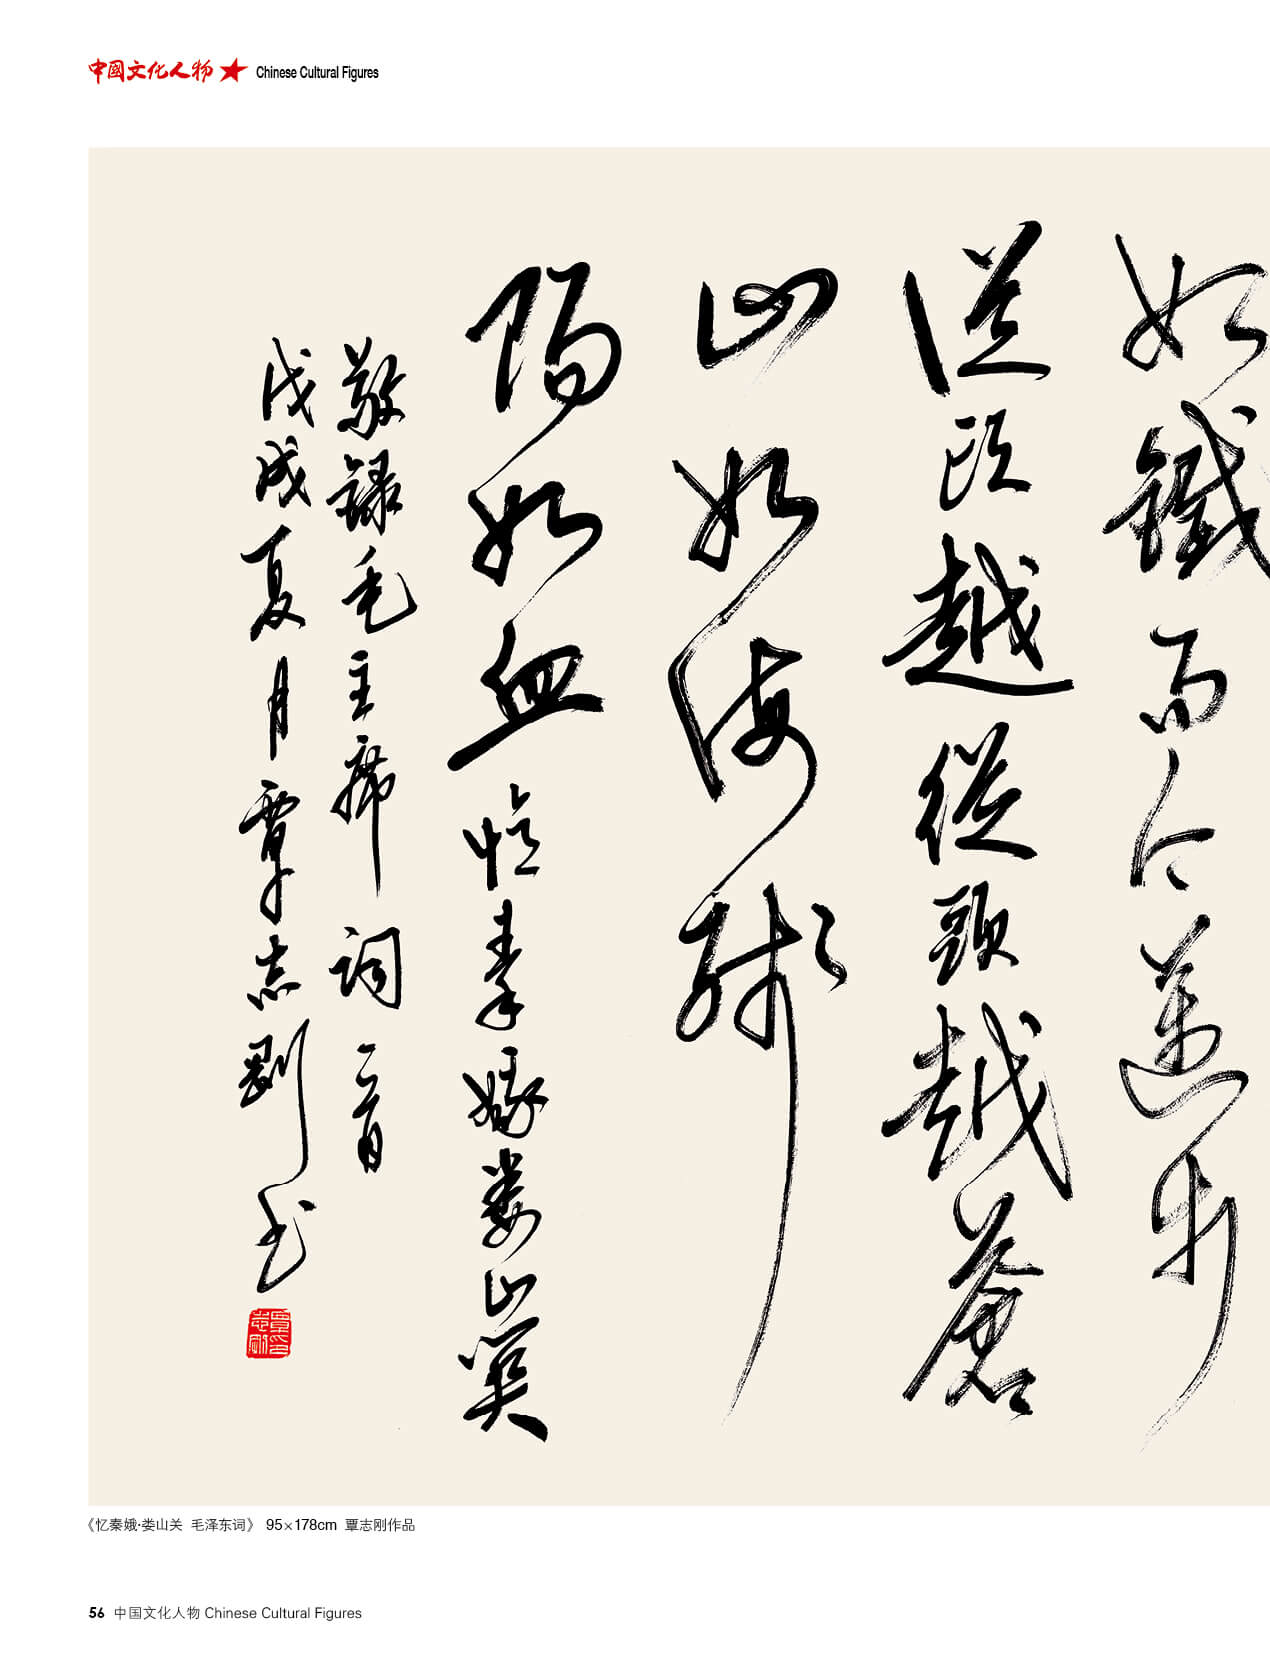 中國文化人物 Chinese Cultural Figures
如鐵而今邁步
從頭越從頭越蒼
山如海殘
陽如血 憶秦娥婁山關
敬録毛主席詞一首
戊戌夏月覃志剛書
《忆秦娥·娄山关 毛泽东词》 95×178cm 覃志刚作品
56 中国文化人物 Chinese Cultural Figures